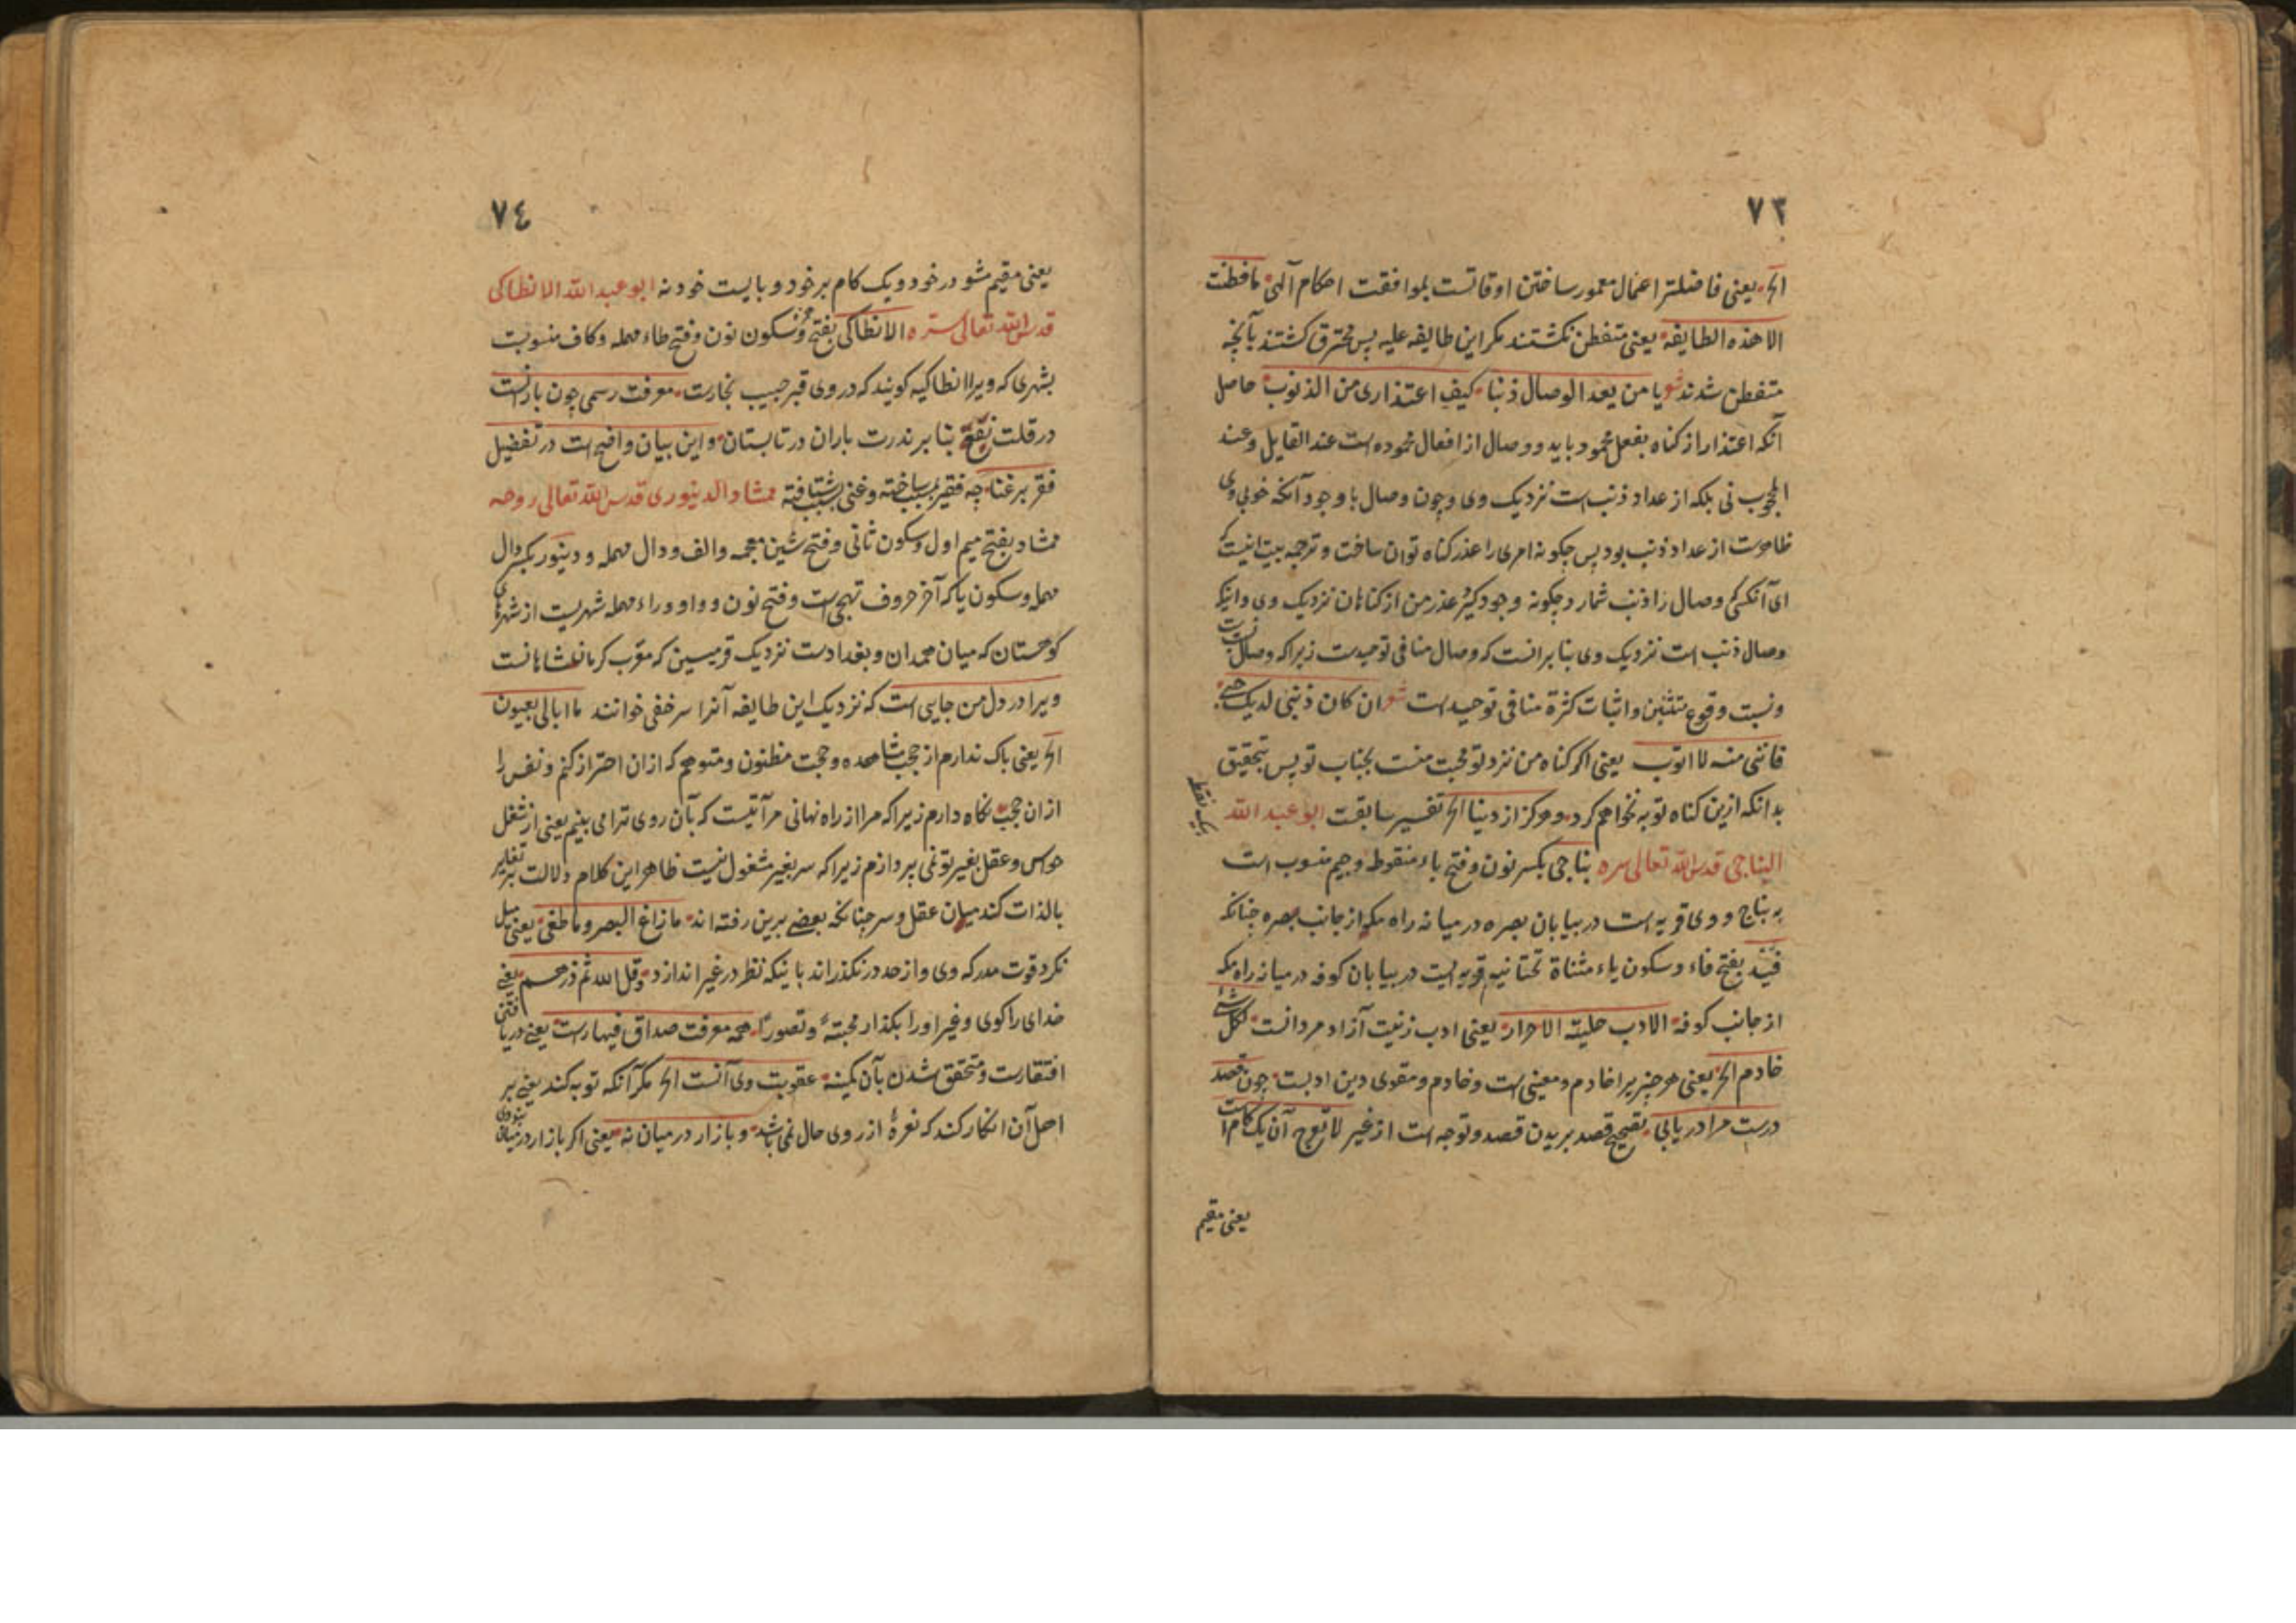 ۷۳
الخ یعنی فاضلترا عمال معمور ساختن اوقاتست بموافقت احکام آلهی ما فطنت
الا هذه الطایفة یعنی متفطن نکشتند مکر این طایفه علیه پس محترق کشتند بآنچه
متفطن شدند شعر یا من یعد الوصال ذنبا کیف اعتذاری من الذنوب حاصل
آنکه اعتذار از کناه بفعل محمود باید و وصال از افعال محموده است عند القایل و عند
المحبوب نی بلکه از عداد ذنب است نزدیک وی و چون وصال با وجود آنکه خوبی وی
ظاهرست از عداد ذنب بود پس چکونه امری را عذر کناه توان ساخت و ترجمه بیت اینست که
ای آنکسی که وصال را ذنب شمارد چکونه وجود کیرد عذر من از کناهان نزدیک وی و اینکه
وصال ذنب است نزدیک وی بنا برانست که وصال منافی توحیدست زیرا که وصال نسبت
و نسبت وقوع متثنین و اثبات کثرة منافی توحیدست شعر ان کان ذنبی لدیک حبی
فاننی منه لا اتوب یعنی اکر کناه من نزد تو محبت منست بجناب تو پس بتحقیق
بدانکه ازین کناه توبه نخواهم کرد و هرکز از دینا الخ تفسیر سابقت ابو عبد الله
بیک نقطه
البناجی قدس الله تعالی سره بناجی بکسر نون و فتح باء منقوطه و جیم منسوب است
به بناج و وی قریه است در بیابان بصره در میانه راه مکه از جانب بصره چنانکه
فید بفتح فاء و سکون یاء مثناة تحتانیه قریه ایست در بیابان کوفه در میانه راه مکه
از جانب کوفه الادب حلیة الاحرار یعنی ادب زینت آزاد مردانست لکل شئ
خادم الخ یعنی هر چیز یرا خادم و معینی است و خادم و مقوی دین ادبست چون قصد
درست مرا دریابی تصحیح قصد بریدن قصد و توجه است از غیر لا تعوج آن یک کام است
یعنی مقیم
۷٤
یعنی مقیم مشو در خود و یک کام بر خود و بایست خود نه ابو عبد الله الانطاکی
قدس الله تعالی سره الانطاکی بفتح همزه و سکون نون و فتح طاء مهمله و کاف منسوبست
بشهری که ویرا انطاکیه کویند که در وی قبر حبیب نجارست معرفت رسمی چون بادانست
در قلت نفع بنا بر ندرت باران در تابستان و این بیان واضح است در تفضیل
فقر بر غنا چه فقیر بسبب ساخته و غنی بسبب شتافته ممشاد الدینوری قدس الله تعالی روحه
ممشاد بفتح میم اول و سکون ثانی و فتح شین معجمه و الف و دال مهمله و دینور بکسر دال
مهمله و سکون یا که آخر حروف تهجی است و فتح نون و واو و راء مهمله شهریست از شهرهای
کوهستان که میان همدان و بغدادست نزدیک قرمیسین که معرب کرمانشاهانست
ویرا در دل من جایی است که نزدیک این طایفه آنرا سر خفی خوانند ما ابالی بعیون
الخ یعنی باک ندارم از حجب مشاهده و حجت مظنون و متوهم که ازان احتراز کنم و نفس را
ازان حجب نکاه دارم زیرا که مرا از راه نهانی مرآتیست که بآن روی ترا می بینم یعنی از شغل
حواس و عقل بغیر تو نمی پردازم زیرا که سر بغیر مشغول نیست ظاهر این کلام دلالت بر تغایر
بالذات کند میان عقل و سر چنانکه بعضی برین رفته اند ما زاغ البصر و ما طغی یعنی میل
نکرد قوت مدرکه وی و از حد در نکذراند با نیکه نظر در غیر اندازد و قل الله ثم ذرهم یعنی
خدای را کوی و غیر او را بکذار محبة و تصورا همه معرفت صداق فیهارست یعنی دریافتن
افتقارست و متحقق شدن بآن کمینه عقوبت وی آنست الخ مکر آنکه توبه کند یعنی بر
اهل آن انکار کند که نعرۀ از روی حال نمی باشد و بازار در میان نه یعنی اکر بازار در میان بنودی